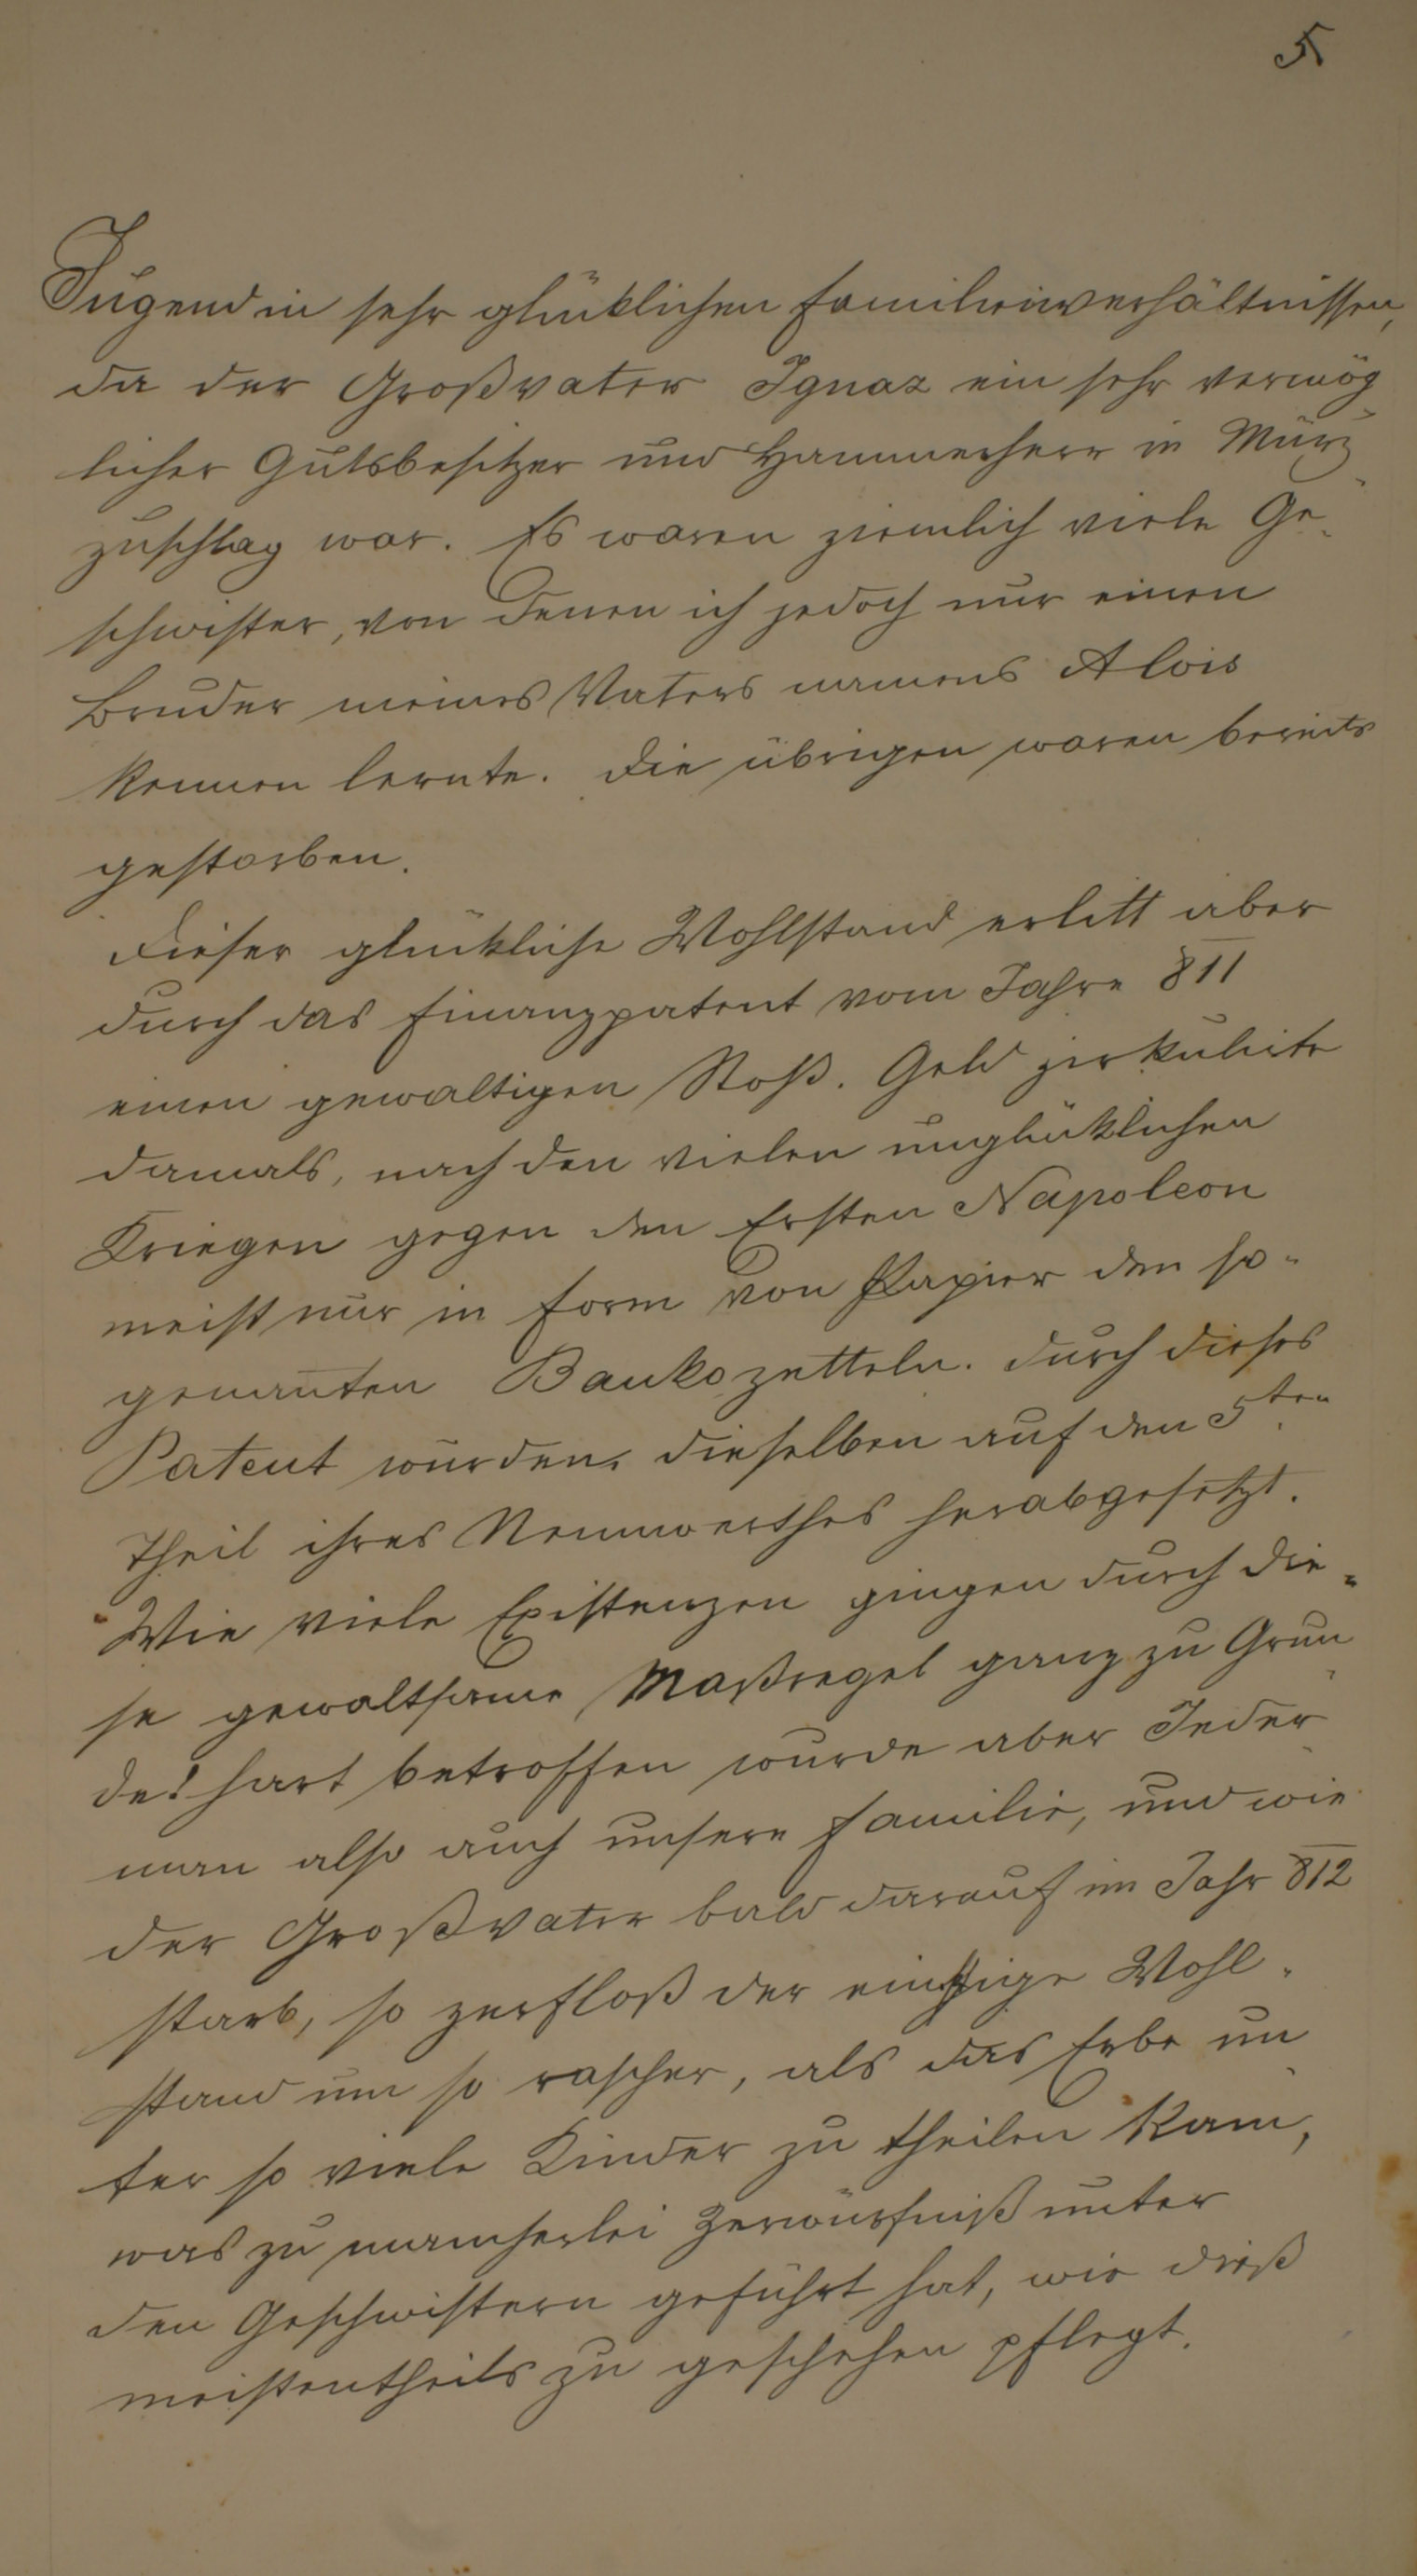 5
Jugend in sehr glücklichen Familienverhältnissen,
da der Großvater Ignaz ein sehr vermög
licher Gutsbesitzer und Hammerherr in Mürz
zuschlag war. Es waren ziemlich viele Ge-
schwister, von denen ich jedoch nur einen
Bruder meines Vaters namens Alois
kennen lernte. Die übrigen waren bereits
gestorben.
Dieser glückliche Wohlstand erlitt aber
durch das Finanzpatent vom Jahre 811
einen gewaltigen Stoß. Geld zirkulirte
damals, nach den vielen unglücklichen
Kriegen gegen den Ersten Napoleon
meist nur in Form von Papier den so-
genan̄ten Bankozetteln. Durch dieses
Patent wurden dieselben auf den 5ten
Theil ihres Nennwerthes herabgesetzt.
Wie viele Existenzen gingen durch die-
se gewaltsame Maßregel ganz zu Grun-
de! hart betroffen wurde aber Jeder-
man also auch unsere Familie, und wie
der Großvater bald darauf im Jahr 812
starb, so zerfloß der einstige Wohl-
stand um so rascher, als das Erbe un-
ter so viele Kinder zu theilen kam,
was zu mancherlei Zerwürfniß unter
den Geschwistern geführt hat, wie dieß
meistentheils zu geschehen pflegt.